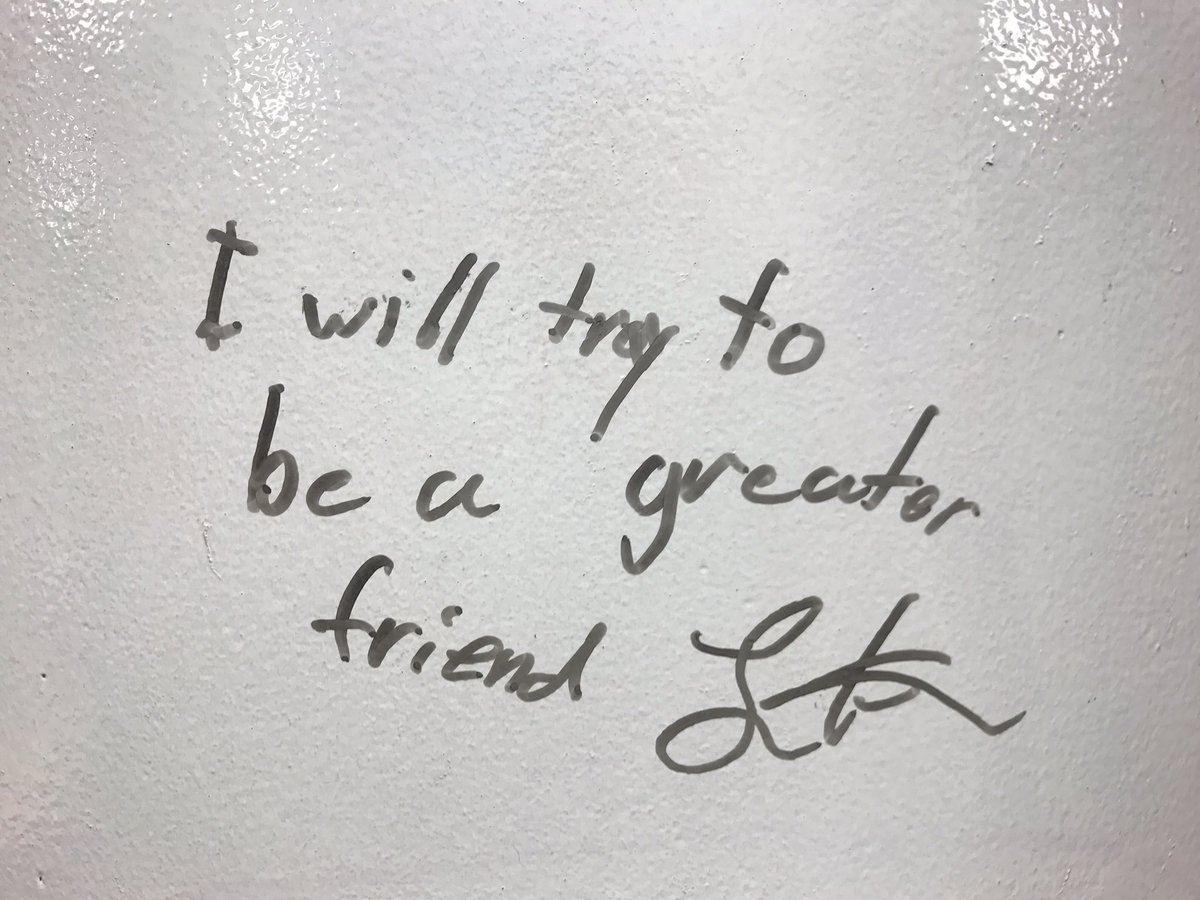 I will try to
be a greater
friend